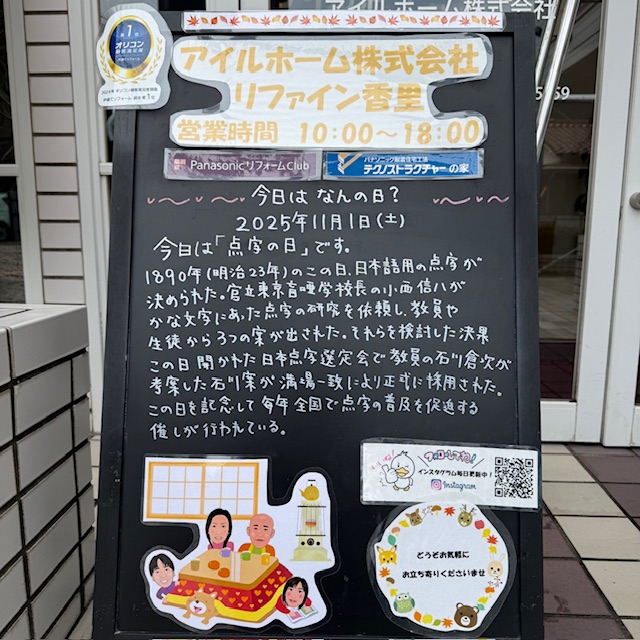 アイルホーム株式会社
No.1
オリコン
顧客満足度
2024年 オリコン顧客満足度調査
戸建てリフォーム 総合 第1位
アイルホーム株式会社
リファイン香里
営業時間 10:00～18:00
Panasonic リフォーム Club
パナソニック耐震住宅工法
テクノストラクチャーの家
今日は なんの日?
2025年11月1日(土)
今日は「点字の日」です。
1890年(明治23年)のこの日、日本語用の点字が
決められた。官立東京盲唖学校長の小西信八が
かな文字にあった点字の研究を依頼し、教員や
生徒から3つの案が出された。それらを検討した結果
この日開かれた日本点字選定会で教員の石川倉次が
考案した石川案が満場一致により正式に採用された。
この日を記念して毎年全国で点字の普及を促進する
催しが行われている。
フォローしてね!
インスタグラム毎日更新中!
Instagram
どうぞお気軽に
お立ち寄りくださいませ